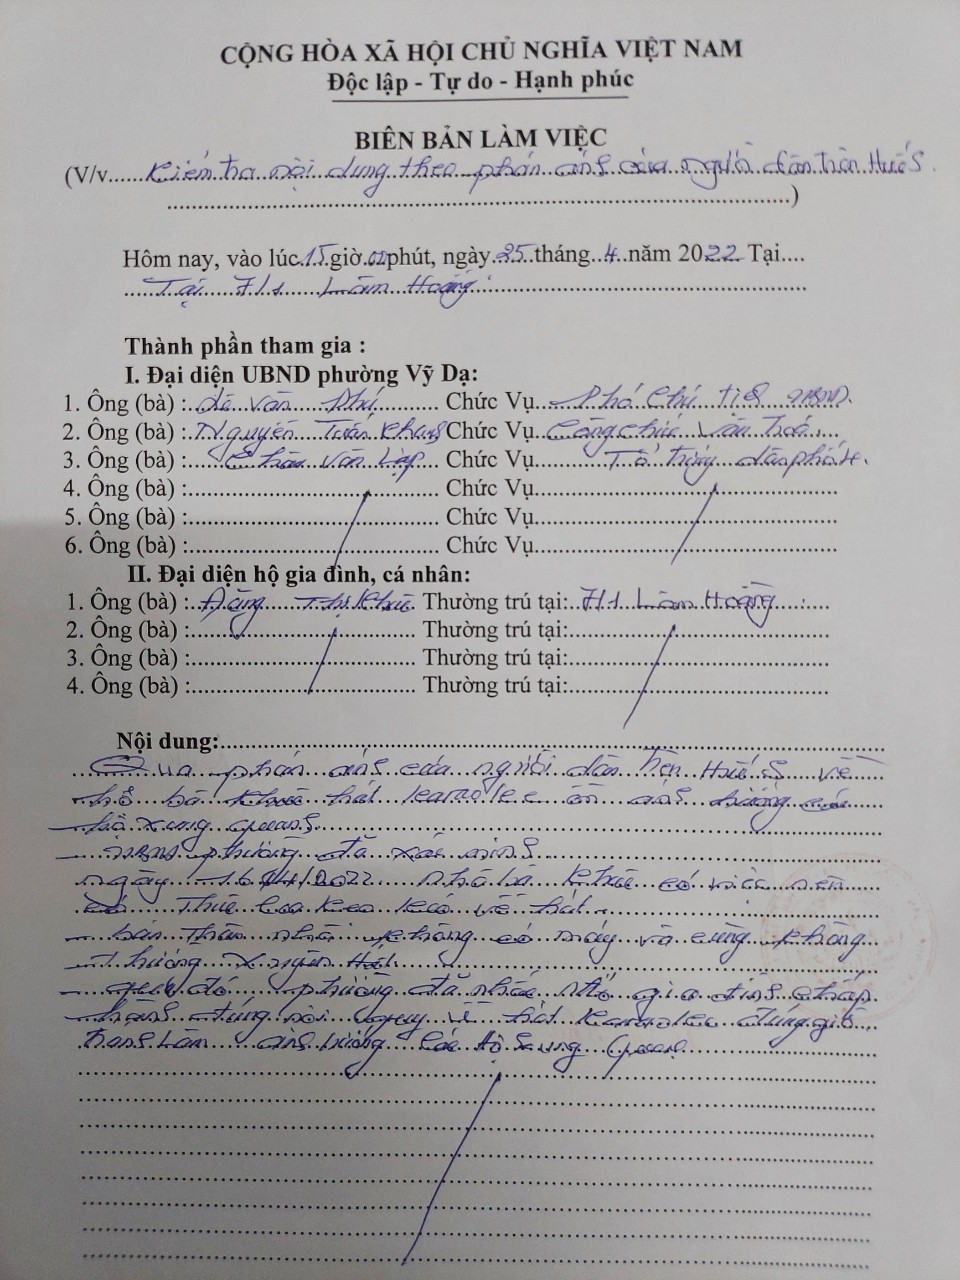 CỘNG HÒA XÃ HỘI CHỦ NGHĨA VIỆT NAM
Độc lập - Tự do - Hạnh phúc
BIÊN BẢN LÀM VIỆC
(V/v......Kiểm tra nội dung theo phản ánh của người dân trên Huế S.
..........)
Hôm nay, vào lúc 15 giờ 00 phút, ngày 25 tháng 4 năm 2022 Tại....
Tại 7/1 Lâm Hoằng
Thành phần tham gia :
I. Đại diện UBND phường Vỹ Dạ:
1. Ông (bà) : Lê Văn Phú Chức Vụ Phó Chủ tịch UBND.
2. Ông (bà) : Nguyễn Trần Chức Vụ Công chức Văn hoá
3. Ông (bà) : Văn Lập Chức Vụ Tổ trưởng dân phố 4.
4. Ông (bà) : Chức Vụ
5. Ông (bà) : Chức Vụ
6. Ông (bà) : Chức Vụ
II. Đại diện hộ gia đình, cá nhân:
1. Ông (bà) : Đặng Thị Khuê Thường trú tại: 7/1 Lâm Hoằng
2. Ông (bà) : Thường trú tại:
3. Ông (bà) : Thường trú tại:
4. Ông (bà) : Thường trú tại:
Nội dung:
Qua phản ánh của người dân trên Huế S về
hộ bà Khuê hát karaokee ồn ảnh hưởng các
hộ xung quanh.
- UBND phường đã xác minh
ngày 16/4/2022 nhà bà Khuê có việc nên
có Thuê loa keo keó về hát.
- bản Thân nhà không có máy và cũng không
Thường Xuyên Hát.
- qua đó, phường đã nhắc nhở gia đình chấp
hành đúng nội quy về hát karaokee đúng giờ
Tránh Làm ảnh hưởng Các hộ Xung quanh